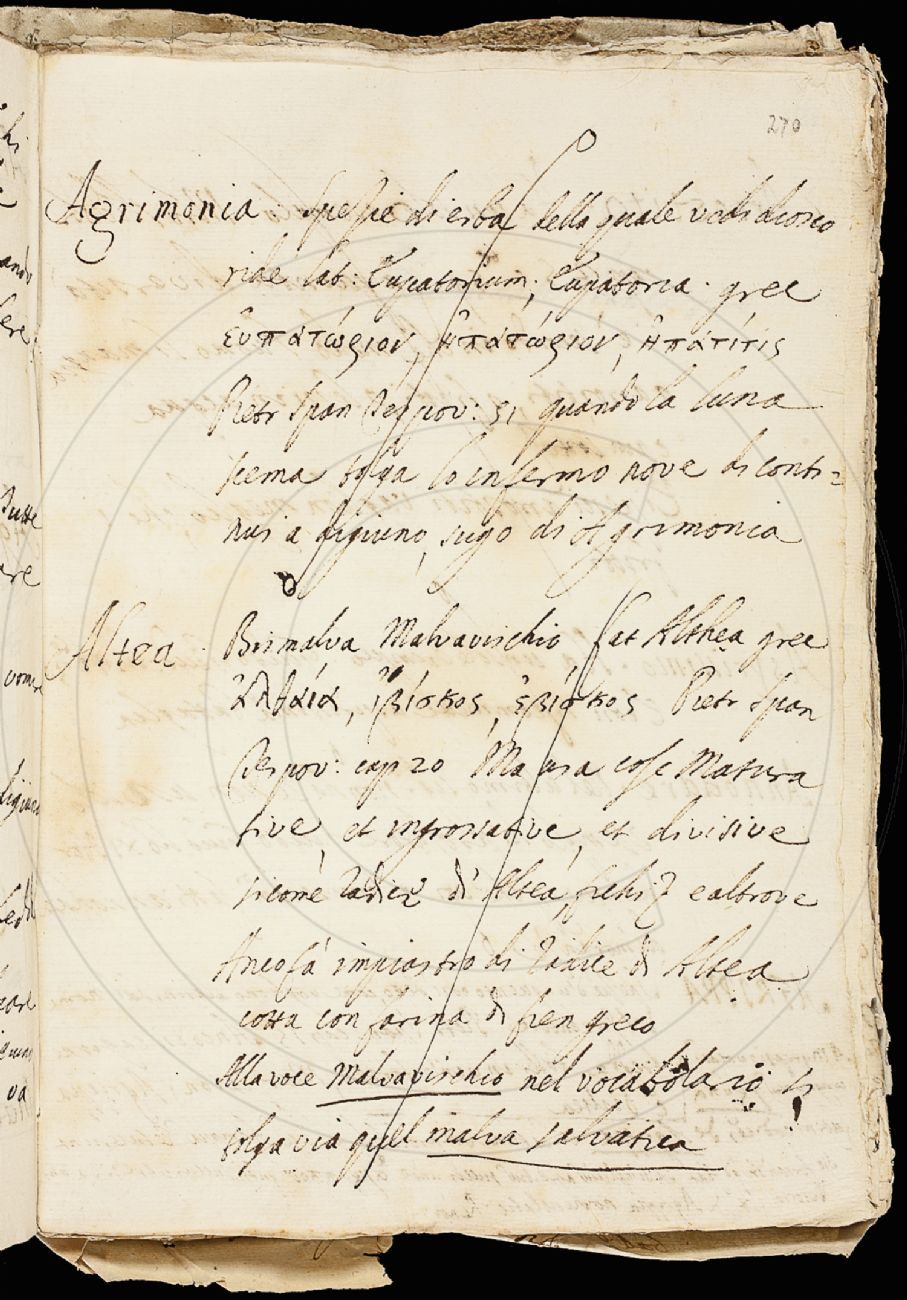 270
Agrimonia. Spezie di erba della quale vedi diosco
ride lat: Eupatorium; Eupatoria. grec
ἐυπατώριον, ἠπατώριόν, ἠπάτίτις
Pietr Span Tes pov: 51 quando la luna
scema tolga lo infermo nove di conti=
nui a digiuno, sugo di Agrimonia
Altea. Bismalva Malvavischio lat Althea grec
ἀλθάία, ἰβίσκος, ἐβίσκος Pietr Span
Tes pov: cap 20 Ma usa cose Matura
tive, et ingrossative, et divisive
sicome radici di Altea, fichi e altrove
Anco fà impiastro di radice di Altea
cotta con farina di fien greco
Alla voce Malvavischio nel vocabolario si
tolga via quel malva salvatica